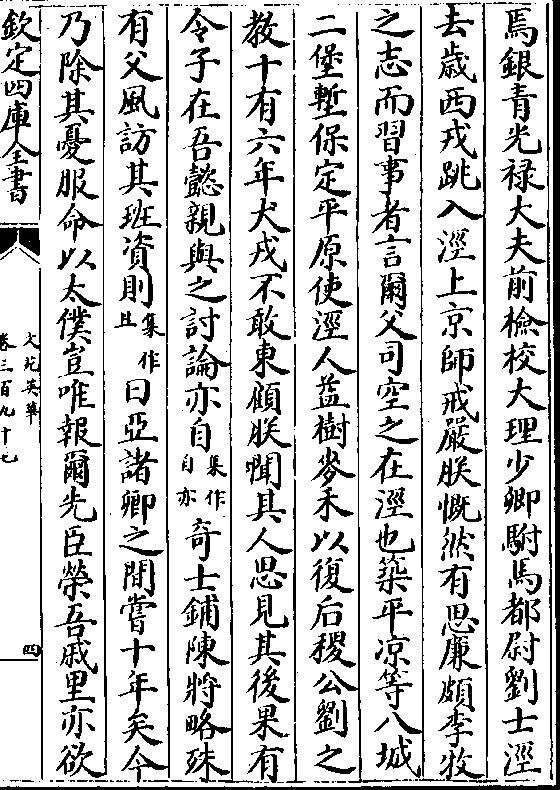 焉銀青光禄大夫前檢校大理少卿駙馬都尉劉士涇
去歲西戎跳入涇上京師戒嚴朕慨然有思廉頗李牧
之志而習事者言爾父司空之在涇也築平凉等八城
二堡塹保定平原使涇人蓺樹麥禾以復后稷公劉之
教十有六年犬戎不敢東顧朕聞其人思見其後果有
令子在吾懿親與之討論亦自集作自亦奇士鋪陳將略殊
有父風訪其班資則集作且曰亞諸卿之間嘗十年矣今
乃除其憂服命以太僕豈唯報爾先臣榮吾戚里亦欲
欽定四庫全書
文苑英華
卷三百九十七
四